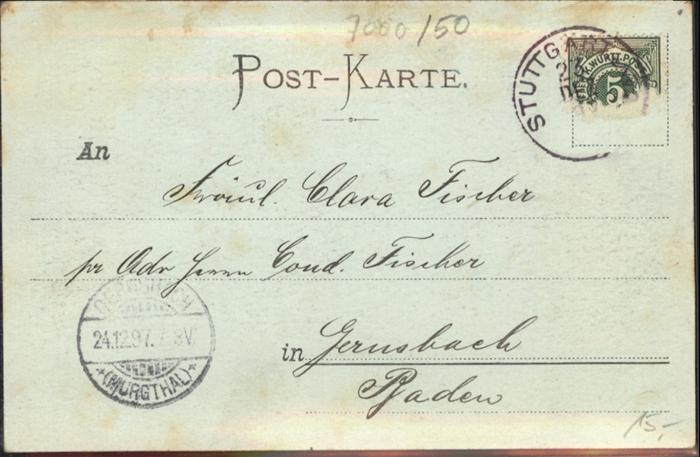 7000/50
POST-KARTE.
STUTTGART
23
DEZ
K. WÜRTT. POST
5
An
Fräul. Clara Fischer
pr Adr Herrn Cond. Fischer
GERNSBACH
24.12.97. 7-8V.
(MURGTHAL)
in Gernsbach
Baden
15,-